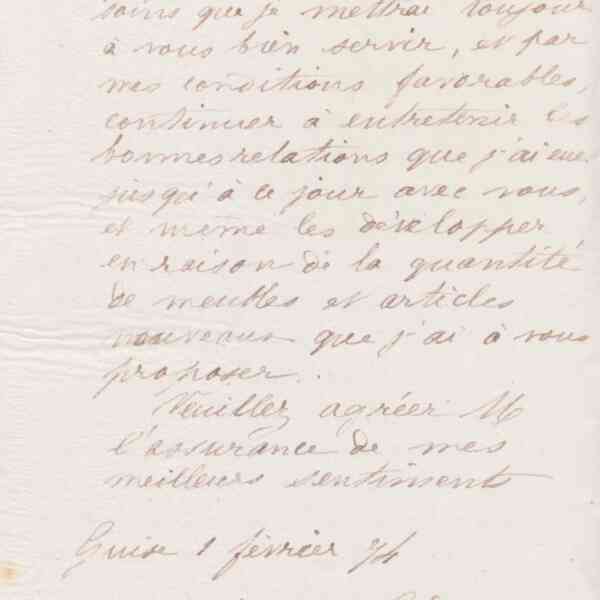 soins que je mettrai toujours
à vous bien servir, et par
mes conditions favorables,
continuer à entretenir les
bonnes relations que j'ai eues
jusqu'à ce jour avec vous,
et même les développer
en raison de la quantité
de meubles et articles
nouveaux que j'ai à vous
proposer.
Veuillez agréer M
l'assurance de mes
meilleurs sentiments
Guise 1 février 74